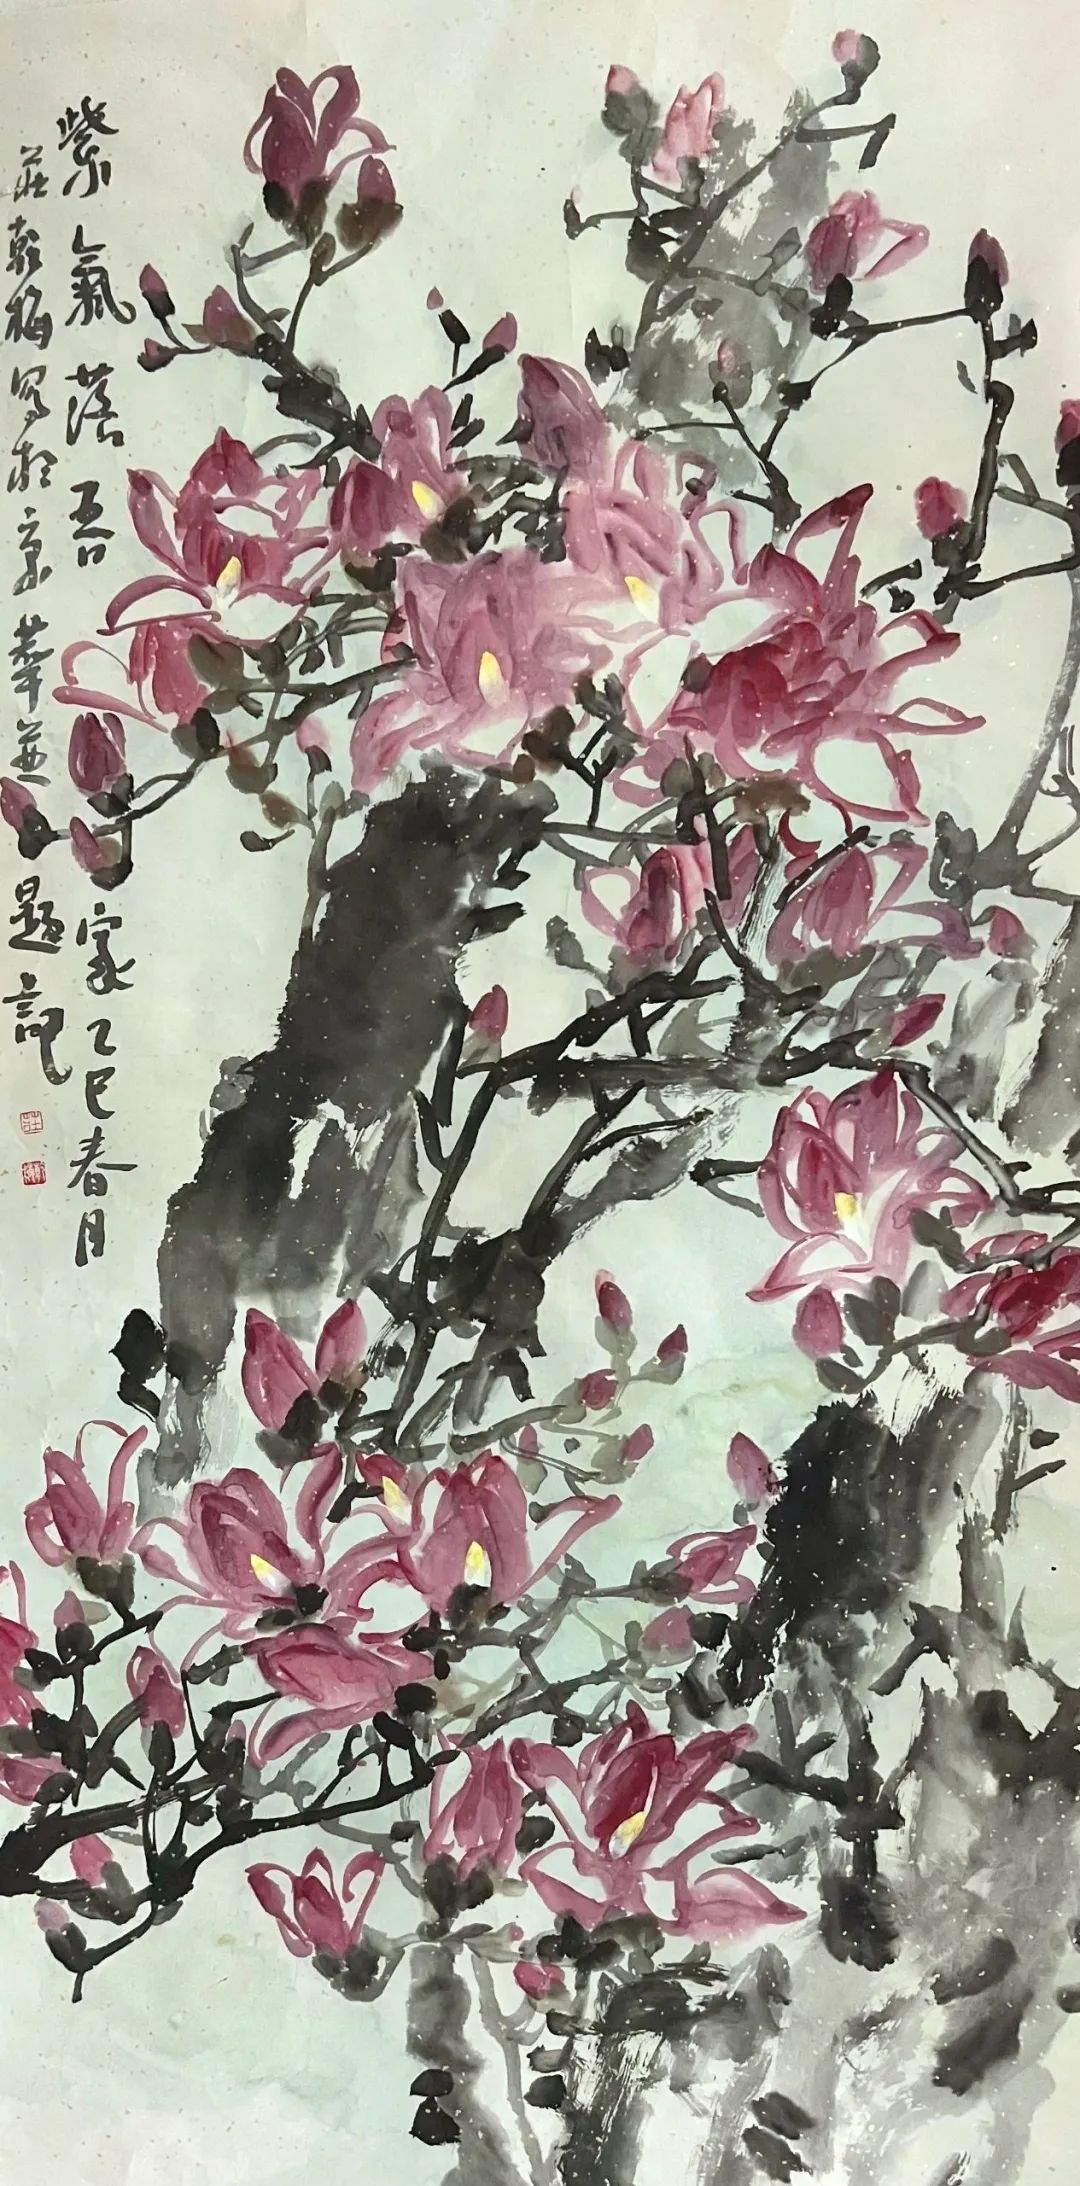 紫氣落吾家乙巳春月
莊乾梅寫於京華並題記
莊